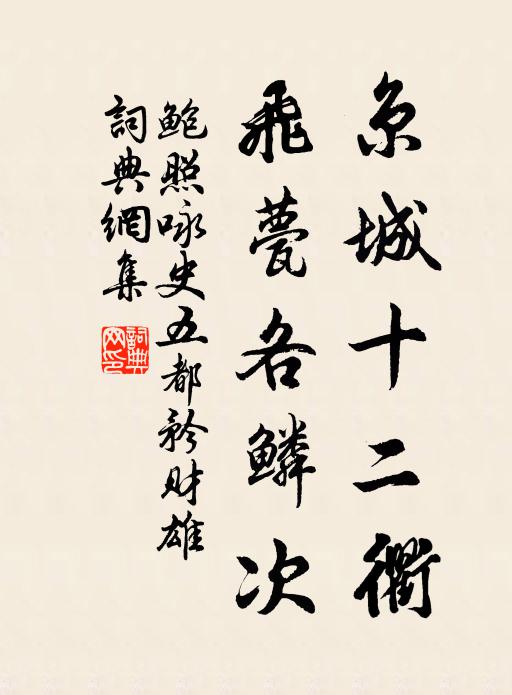 京城十二衢
飛甍各鱗次
鮑照咏史五都矜财雄
詞典網集
詞典網印